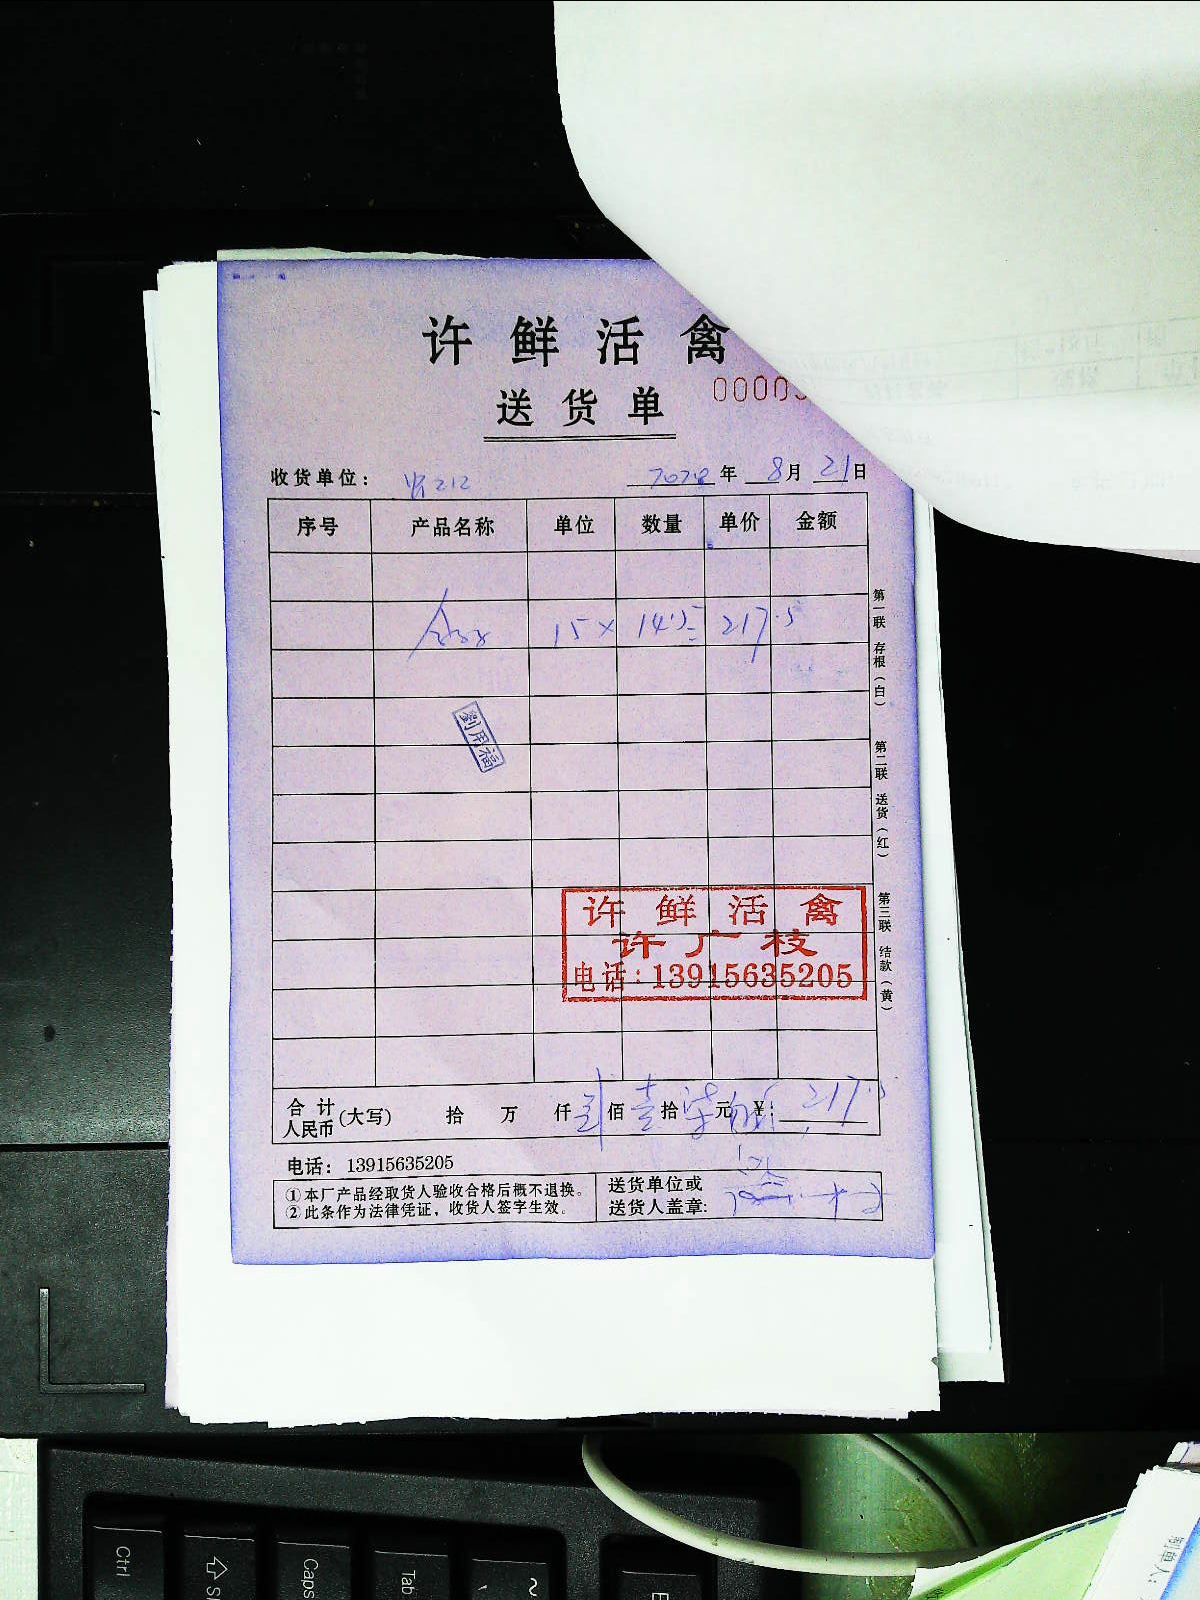 许鲜活禽
送货单
00003
收货单位：
年 8月21日
序号 产品名称 单位 数量 单价 金额
15× 14.5= 217.5
刘用福
第一联 存根（白）
第二联 送货（红）
第三联 结款（黄）
许鲜活禽
许广枝
电话:13915635205
合计人民币(大写) 拾 万 仟 佰 壹 拾 柒 元 ¥: 217.5
电话：13915635205
①本厂产品经取货人验收合格后概不退换。
②此条作为法律凭证，收货人签字生效。
送货单位或
送货人盖章:
制单人:
Ctrl
Caps
Tab
~